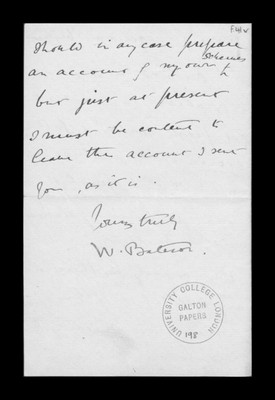 F48v
should in any case prepare
an account of my own schemes
but just at present
I must be content to
leave the account I sent
you, as it is.
Yours truly
W. Bateson.
UNIVERSITY COLLEGE LONDON
GALTON
PAPERS
198